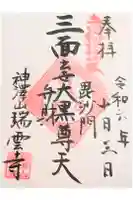 奉拝
令和六年
十月三日
毘沙門
三面大黒尊天
弁財
神護山瑞雲寺